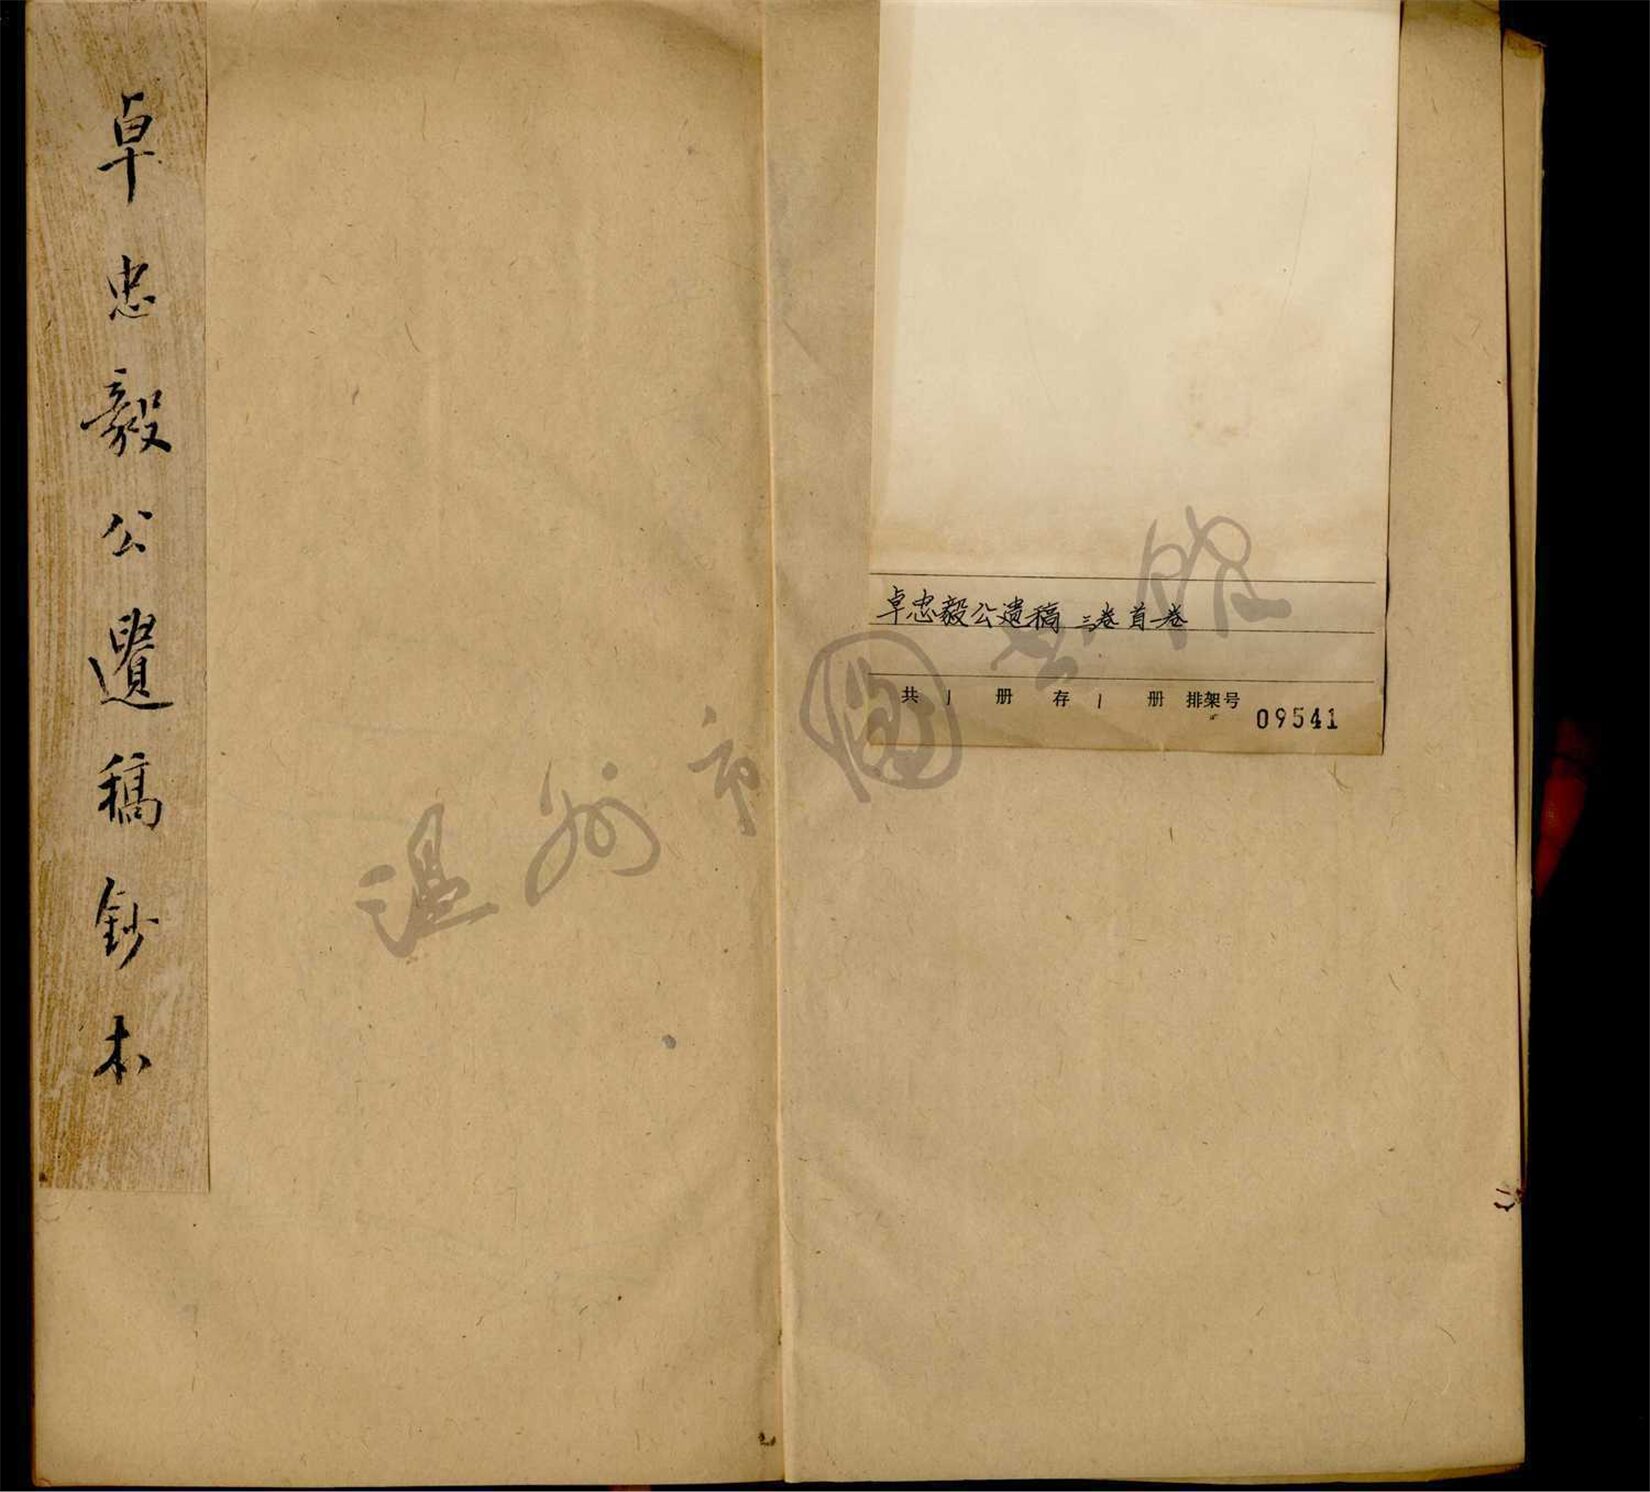 卓忠毅公遺稿鈔本
卓忠毅公遗稿 三卷 首一卷
共 1 册 存 1 册 排架号 09541
温州市圖书馆